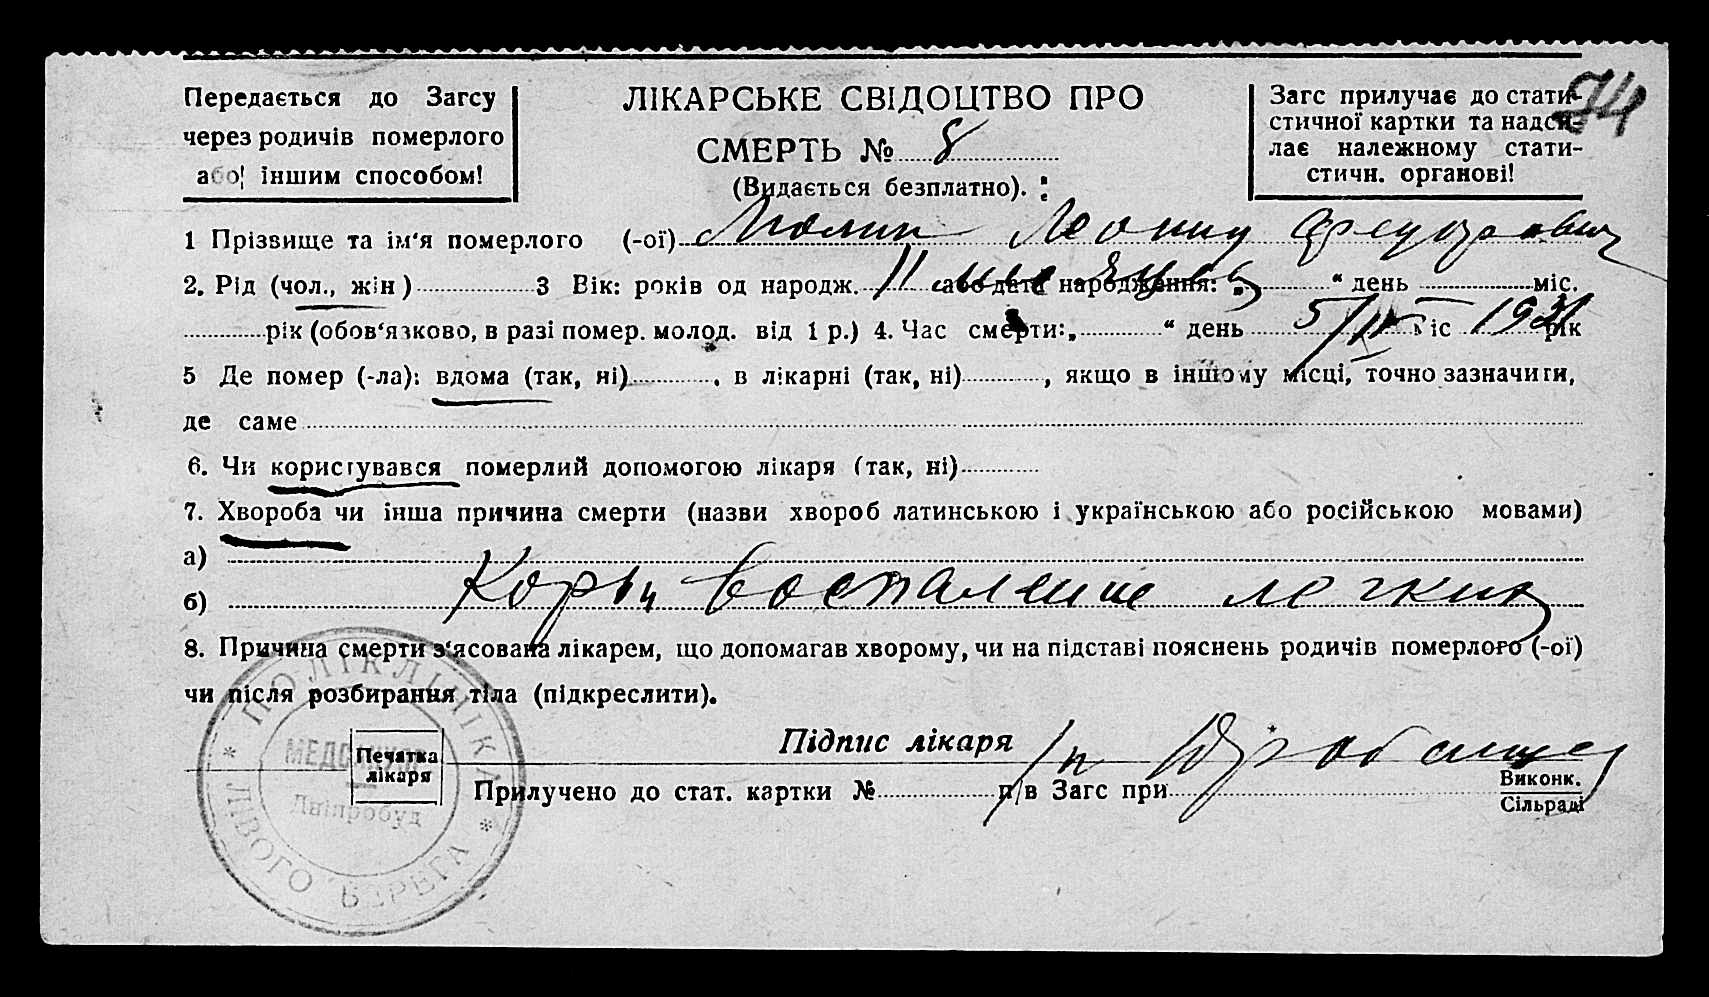 Передається до Загсу
через родичів померлого
або іншим способом!
ЛІКАРСЬКЕ СВІДОЦТВО ПРО
СМЕРТЬ № 8
(Видається безплатно).
Загс прилучає до стати-
стичної картки та надси-
лає належному стати-
стичн. органові!
74
1 Прізвище та ім'я померлого (-ої) Леонид
2. Рід (чол., жін) 3 Вік: років од народж. 11 месяцев або дата народження: „ “ день міс.
рік (обов'язково, в разі помер. молод. від 1 р.) 4. Час смерти: „ “ день 5/IV міс 1931 рік
5 Де помер (-ла): вдома (так, ні) , в лікарні (так, ні) , якщо в іншому місці, точно зазначити,
де саме
6. Чи користувався померлий допомогою лікаря (так, ні)
7. Хвороба чи інша причина смерти (назви хвороб латинською і українською або російською мовами)
а)
б) Корь и воспаление легких
8. Причина смерти з'ясована лікарем, що допомагав хворому, чи на підставі пояснень родичів померлого (-ої)
чи після розбирання тіла (підкреслити).
Підпис лікаря п/п
Печатка
лікаря
Прилучено до стат. картки № п/в Загс при
Виконк.
Сільраді
ПОЛІКЛІНІКА * ЛІВОГО БЕРЕГА *
Дніпробуд